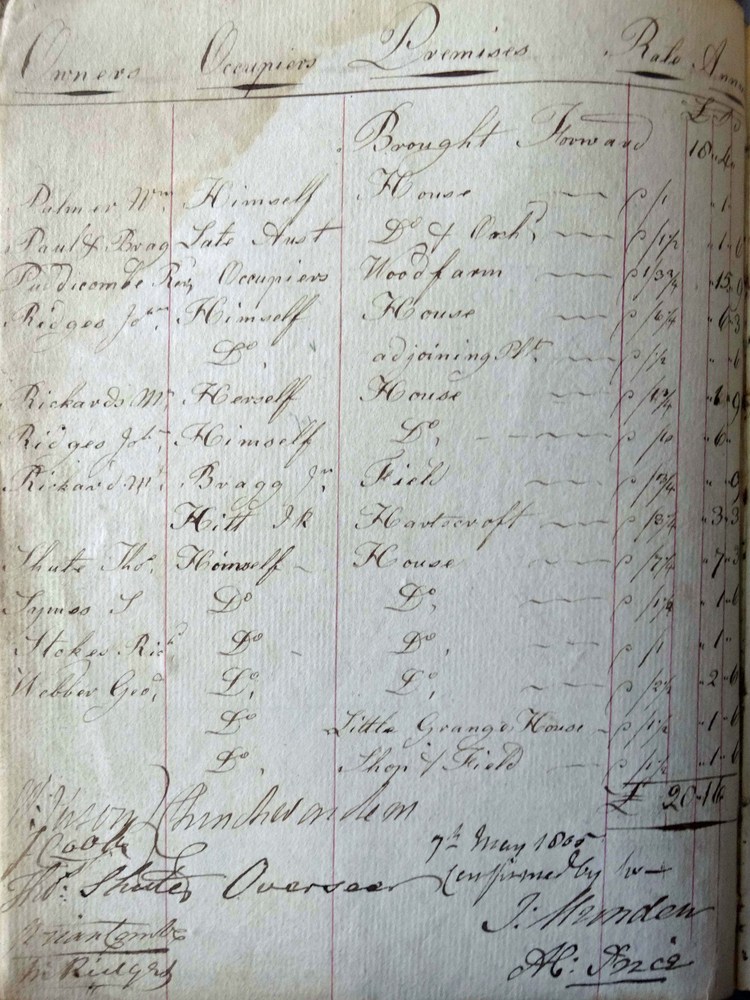 Owners Occupiers Premises Rate
Brought Forward 18 " 4 "
Palmer Wm Himself House p /1 " 1 "
Paul & Brag Late Aust Do & Orchd p /1½ " 1 " 6
Puddicombe Revd Occupiers Woodfarm p 1/3¾ " 15 "
Ridges Jonn Himself House p /6¼ " 6 " 3
Do adjoining Plt p /½ " " 6
Rickards Mrs Herself House p
Ridges Jot Himself Do " 6 "
Rickard Mr Bragg Jr Field p /¾ " " 9
Hitt J R Hartscroft p /3¼ " 3 " 3
Shute Thos Himself House p /7¼ " 7 " 3
Symes S Do Do " 1 " 6
Stokes Richd Do Do p /1 " 1 "
Webber Geo Do Do p /2½ " 2 " 6
Do Little Grange House p /1½ " 1 " 6
Do Shop & Field p /1½ " 1 " 6
£ 20 " 16
Churchwardens
7th May 1805
Thos Shute Overseer Confirmed by us
Wm Ridges